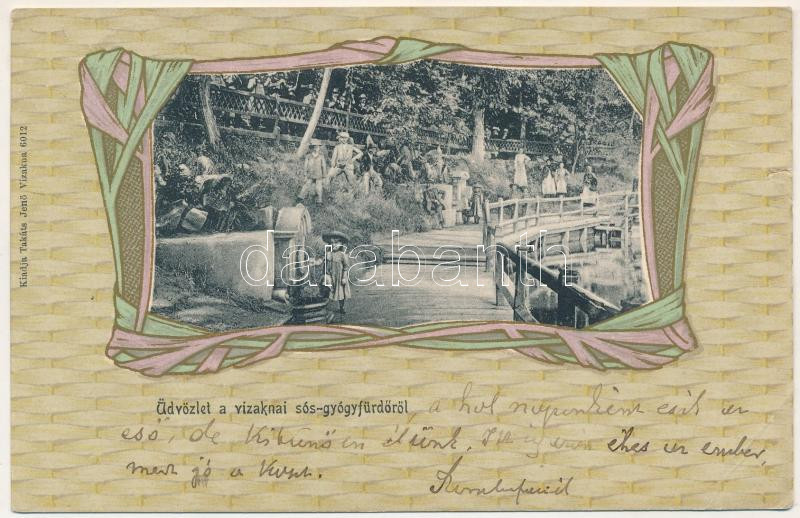 Kiadja Takáts Jenő Vizakna 6012
darabanth
Üdvözlet a vizaknai sós-gyógyfürdőről, a hol naponként esik az
eső, de kitünően élünk. éhes az ember,
mert jó a koszt.